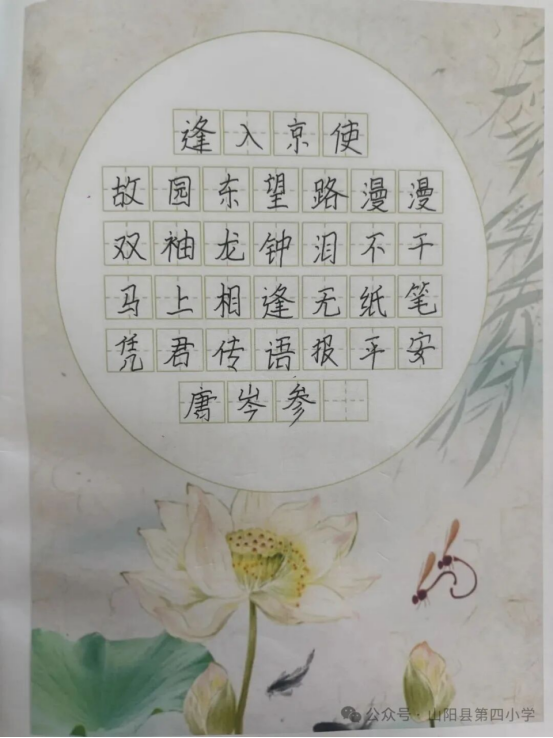 逢入京使
故园东望路漫漫
双袖龙钟泪不干
马上相逢无纸笔
凭君传语报平安
唐岑参
公众号·山阳县第四小学